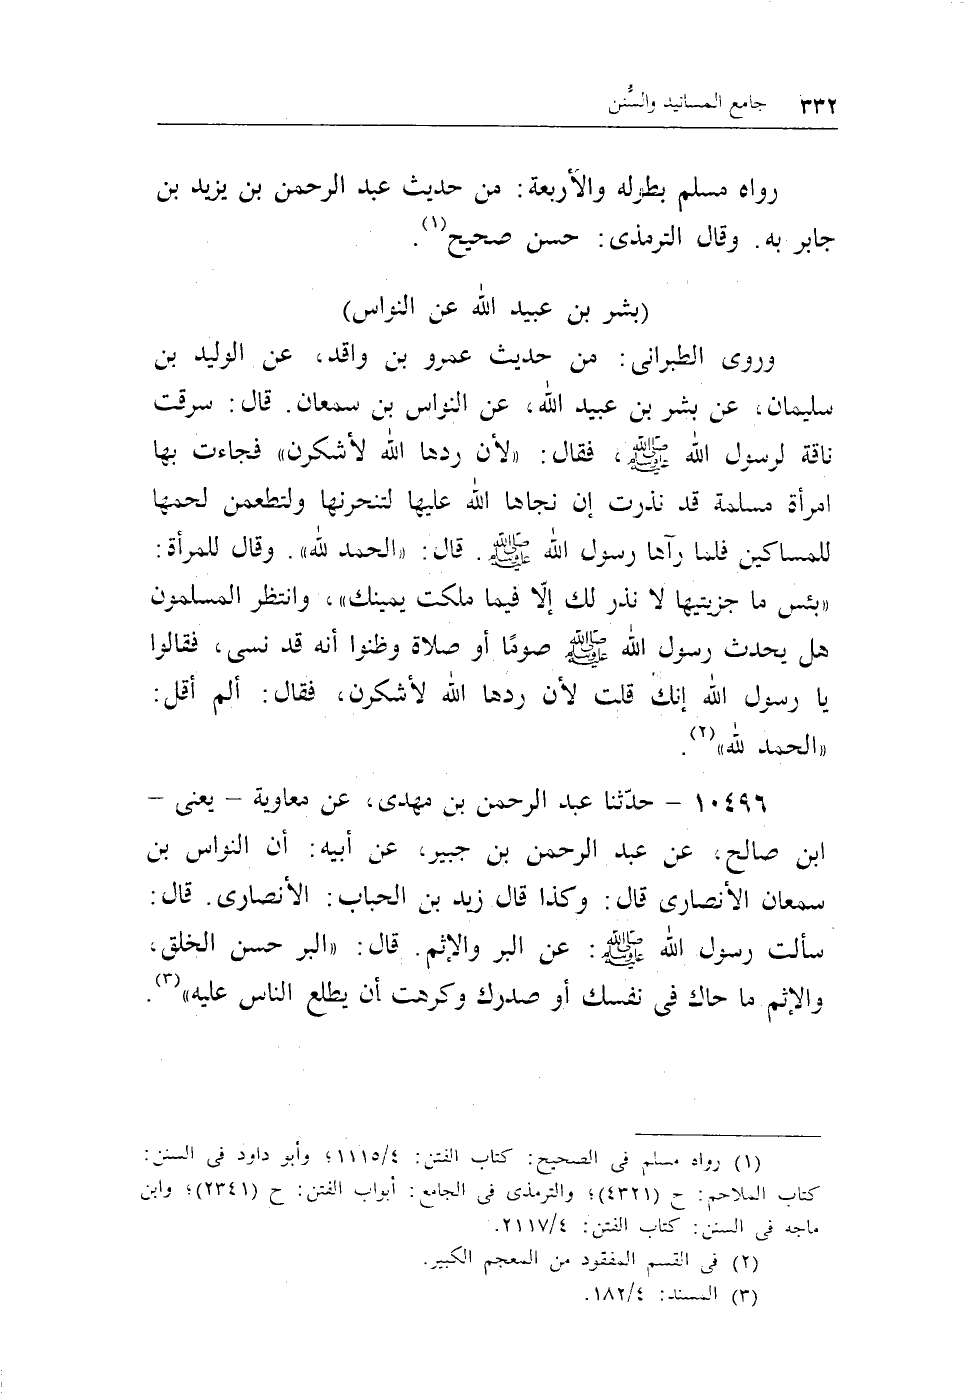 ٣٣٢ جامع المسانيد والسُّنن
رواه مسلم بطوله والأربعة: من حديث عبد الرحمن بن يزيد بن
جابر به. وقال الترمذى: حسن صحيح(١).
(بشر بن عبيد الله عن النواس)
وروى الطبرانى: من حديث عمرو بن واقد، عن الوليد بن
سليمان، عن بشر بن عبيد الله، عن النواس بن سمعان. قال: سرقت
ناقة لرسول الله ﷺ، فقال: «لأن ردها الله لأشكرن» فجاءت بها
امرأة مسلمة قد نذرت إن نجاها الله عليها لتنحرنها ولتطعمن لحمها
للمساكين فلما رآها رسول الله ﷺ. قال: «الحمد لله». وقال للمرأة:
«بئس ما جزيتيها لا نذر لك إلّا فيما ملكت يمينك»، وانتظر المسلمون
هل يحدث رسول الله ﷺ صومًا أو صلاة وظنوا أنه قد نسى، فقالوا
يا رسول الله إنك قلت لأن ردها الله لأشكرن، فقال: ألم أقل:
«الحمد لله»(٢).
١٠٤٩٦ – حدّثنا عبد الرحمن بن مهدى، عن معاوية – يعنى –
ابن صالح، عن عبد الرحمن بن جبير، عن أبيه: أن النواس بن
سمعان الأنصارى قال: وكذا قال زيد بن الحباب: الأنصارى. قال:
سألت رسول الله ﷺ: عن البر والإثم. قال: «البر حسن الخلق،
والإثم ما حاك فى نفسك أو صدرك وكرهت أن يطلع الناس عليه»(٣).
(١) رواه مسلم فى الصحيح: كتاب الفتن: ١١١٥/٤؛ وأبو داود فى السنن:
كتاب الملاحم: ح (٤٣٢١)؛ والترمذى فى الجامع: أبواب الفتن: ح (٢٣٤١)؛ وابن
ماجه فى السنن: كتاب الفتن: ٢١١٧/٤.
(٢) فى القسم المفقود من المعجم الكبير.
(٣) المسند: ١٨٢/٤.